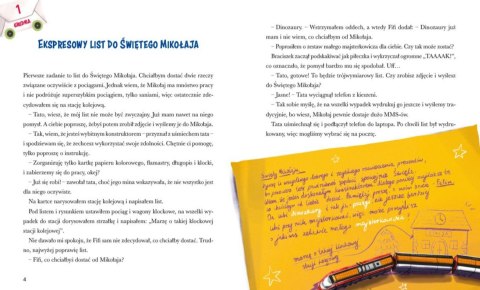 1
EKSPRESOWY LIST DO ŚWIĘTEGO MIKOŁAJA
Pierwsze zadanie to list do Świętego Mikołaja. Chciałbym dostać dwie rzeczy
związane oczywiście z pociągami. Jednak wiem, że Mikołaj ma mnóstwo pracy
i nie podróżuje superszybkim pociągiem, tylko saniami, więc ostatecznie zde-
cydowałem się na stację kolejową.
– Tato, wiem, że mój list nie może być zwyczajny. Już mam nawet na niego
pomysł. A ciebie poproszę, żebyś potem zrobił zdjęcie i wysłał je do Mikołaja.
– Tak, wiem, że jesteś wybitnym konstruktorem – przyznał z uśmiechem tata –
i spodziewam się, że zechcesz wykorzystać swoje zdolności. Chętnie ci pomogę,
tylko poproszę o instrukcję.
– Zorganizuję tylko kartkę papieru kolorowego, flamastry, długopis i klocki,
i zabierzemy się do pracy, okej?
– Już się robi! – zawołał tata, choć jego mina wskazywała, że nie wszystko jest
dla niego oczywiste.
Na kartce narysowałem stację kolejową i napisałem list.
Pod listem i rysunkiem ustawiłem pociąg i wagony klockowe, na wszelki wy-
padek do stacji dorysowałem strzałkę i napisałem: „Marzę o takiej klockowej
stacji kolejowej”.
Nie dawało mi spokoju, że Fifi sam nie zdecydował, co chciałby dostać. Trud-
no, najwyżej poprawię list.
– Fifi, co chciałbyś dostać od Mikołaja?
4
– Dinozaury. – Wstrzymałem oddech, a wtedy Fifi dodał: – Dinozaury już
mam i nie wiem, co chciałbym od Mikołaja.
– Poprosiłem o zestaw małego majsterkowicza dla ciebie. Czy tak może zostać?
Braciszek zaczął podskakiwać jak piłeczka i wykrzyczał ogromne „TAAAAK!”,
co oznaczało, że pomysł bardzo mu się spodobał. Uff…
– Tato, gotowe! To będzie trójwymiarowy list. Czy zrobisz zdjęcie i wyślesz
do Świętego Mikołaja?
– Jasne! – Tata wyciągnął telefon z kieszeni.
– Tak sobie myślę, że na wszelki wypadek wydrukuj go jeszcze i wyślemy tra-
dycyjnie, bo wiesz, Mikołaj pewnie dostaje dużo MMS-ów.
Tata uśmiechnął się i podłączył telefon do laptopa. Po chwili list był wydru-
kowany, więc mogliśmy wybrać się na pocztę.
Święty Mikołaju,